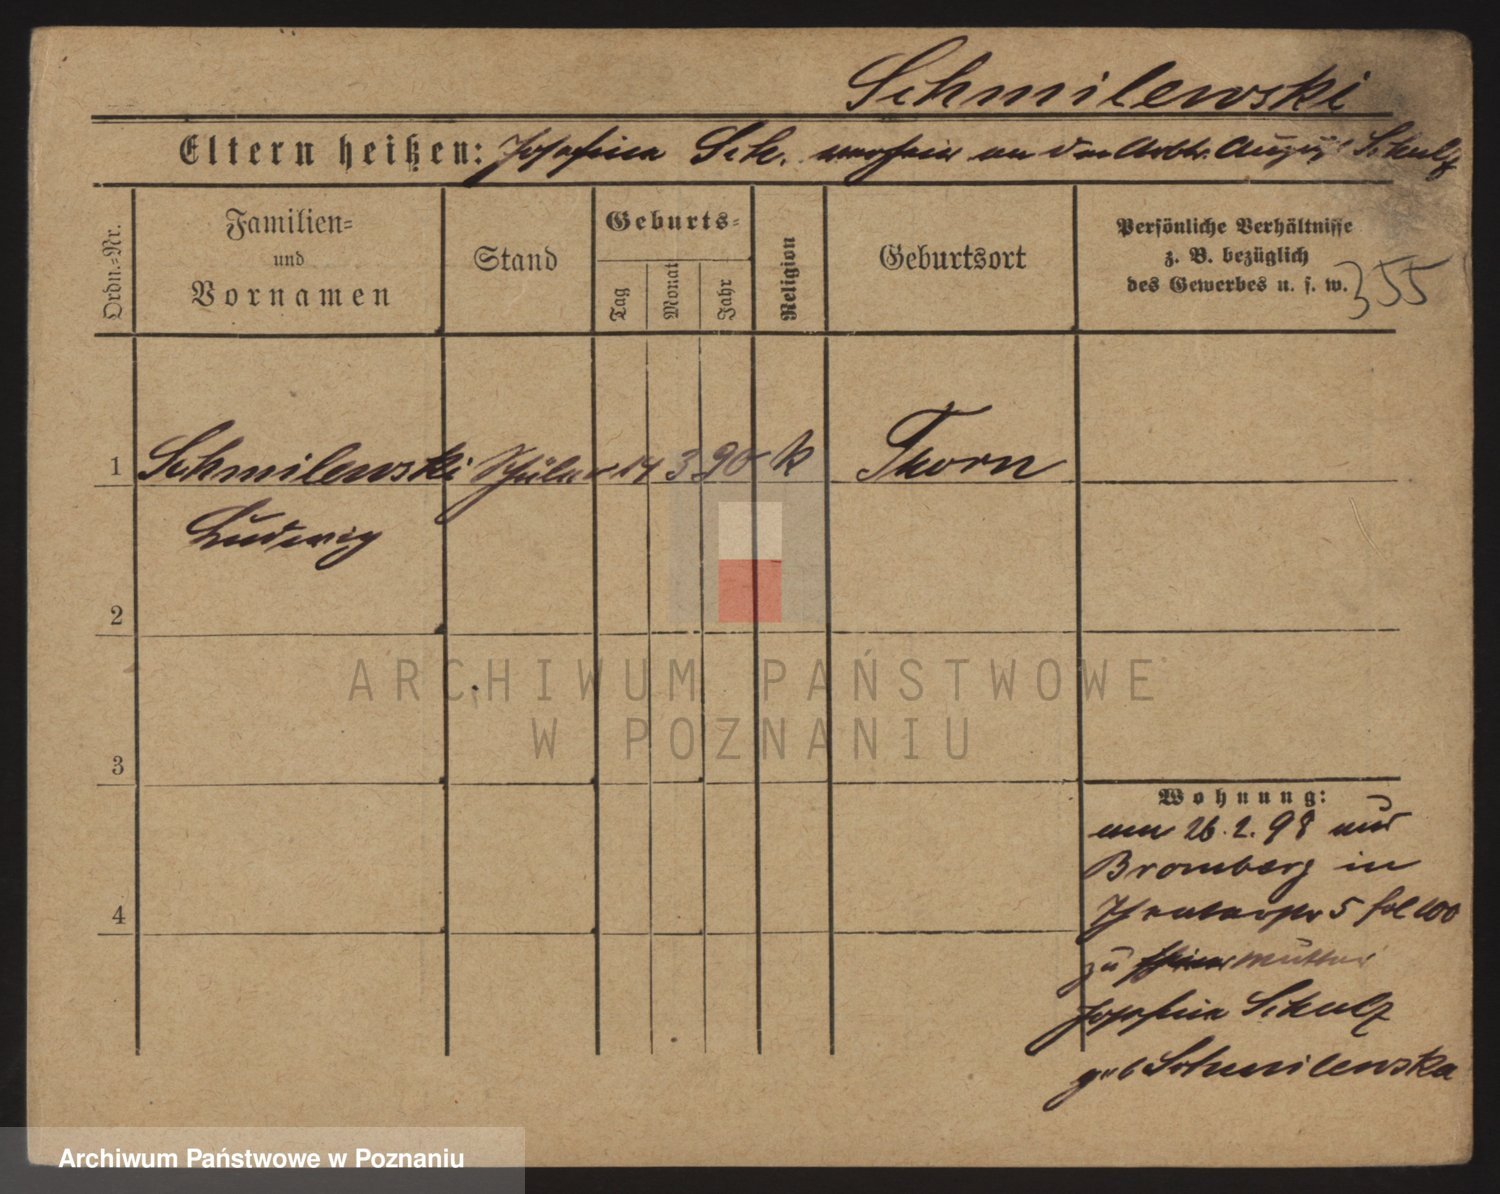 Schmilewski
Eltern heißen: Josefina Sch. verehel. an den Arbtr. August Schulz
Ordn.-Nr.
Familien-
und
Vornamen
Stand
Geburts-
Tag
Monat
Jahr
Religion
Geburtsort
Persönliche Verhältnisse
z. B. bezüglich
des Gewerbes u. s. w.
355
1 Schmilewski Schüler 14 3 90 k Thorn
Ludwig
2
3
4
ARCHIWUM PAŃSTWOWE
W POZNANIU
Wohnung:
am 26.2.98 aus
Bromberg in
5 fol 100
zu Mutter
Josefina Schulz
geb Schmilewska
Archiwum Państwowe w Poznaniu